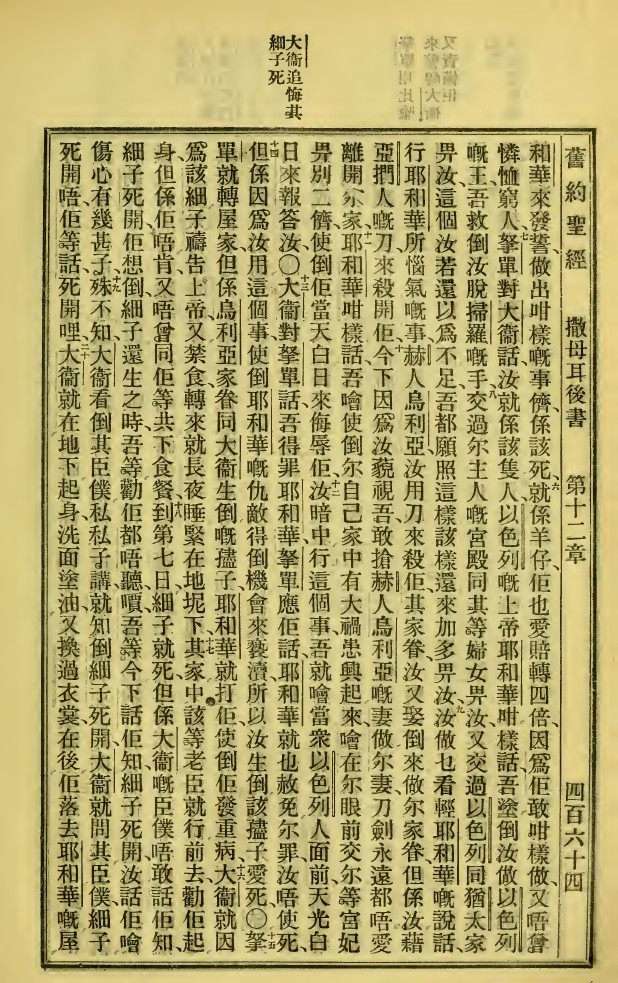 大衞追悔其
細子死
舊約聖經 撒母耳後書 第十二章 四百六十四
和華來發誓、做出咁樣嘅事儕係該死、六就係羊仔佢也愛賠轉四倍、因爲佢敢咁樣做、又唔曾
憐恤窮人、七拏單對大衞話、汝就係該隻人、以色列嘅上帝耶和華咁樣話、吾塗倒汝做以色列
嘅王、吾救倒汝脫掃羅嘅手、八交過尔主人嘅宮殿同其等婦女畀汝、又交過以色列同猶太家
畀汝、這個汝若還以爲不足、吾都願照這樣該樣還來加多畀汝、九汝做乜看輕耶和華嘅說話、
行耶和華所惱氣嘅事、赫人烏利亞、汝用刀來殺佢、其家眷汝又娶倒來做尔家眷、但係汝藉
亞捫人嘅刀來殺開佢、十今下因爲汝藐視吾、敢搶赫人烏利亞嘅妻做尔妻、刀劍永遠都唔愛
離開尔家、十一耶和華咁樣話、吾噲使倒尔自己家中有大禍患興起來、噲在尔眼前交尔等宮妃
畀別二儕、使倒佢當天白日來侮辱佢、十二汝暗中行這個事、吾就噲當衆以色列人面前天光白
日來報答汝、〇十三大衞對拏單話、吾得罪耶和華、拏單應佢話、耶和華就也赦免尔罪、汝唔使死、
十四但係因爲汝用這個事、使倒耶和華嘅仇敵得倒機會來褻瀆、所以汝生倒該孻子愛死、〇十五拏
單就轉屋家、但係烏利亞家眷同大衞生倒嘅孻子、耶和華就打佢、使倒佢發重病、十六大衞就因
爲該細子禱告上帝、又禁食、轉來就長夜睡緊在地坭下、十七其家中該等老臣就行前去、勸佢起
身、但係佢唔肯、又唔曾同佢等共下食餐、十八到第七日細子就死、但係大衞嘅臣僕唔敢話佢知、
細子死開、佢想倒、細子還生之時、吾等勸佢都唔聽嘪吾等、今下話佢知細子死開、汝話佢噲
傷心有幾甚子、殊不知、十九大衞看倒其臣僕私私子講、就知倒細子死開、大衞就問其臣僕、細子
死開唔、佢等話、死開哩、二十大衞就在地下起身、洗面塗油、又換過衣裳、在後佢落去耶和華嘅屋